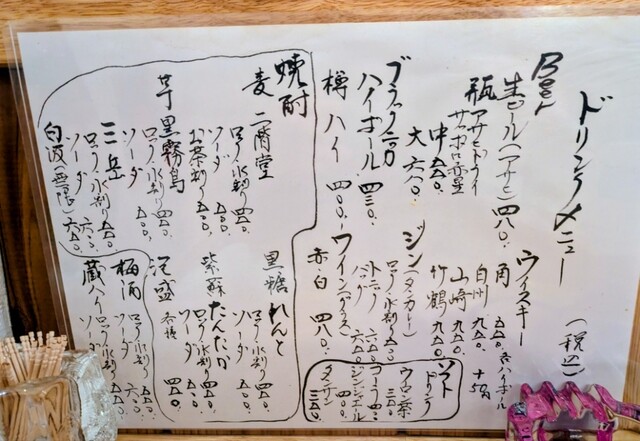 ドリンクメニュー (税込)
Beer
生ビール(アサヒ) 四八〇.
瓶 アサヒドライ
サッポロ赤星
中 五五〇.
大 六六〇.
ブラックニッカ
ハイボール. 四三〇.
樽ハイ 四〇〇.
ウイスキー
角 五五〇.
白州 九五〇.
山崎 九五〇.
竹鶴 九五〇.
ジン(タンカレー)
ロック 水割り 五五〇.
トニック 六〇〇.
ソーダ 六〇〇.
ワイン(グラス)
赤・白 四八〇.
ソフトドリンク
ウーロン茶 三五〇.
コーラ 四〇〇
ジンジャエール 四〇〇
タンサン 三五〇.
焼酎
麦 二階堂
ロック 水割り 四五〇.
ソーダ 五〇〇.
お茶割り 五五〇.
芋 黒霧島
ロック 水割り 四五〇.
ソーダ 五〇〇.
三岳
ロック 水割り 五五〇.
ソーダ 六〇〇.
白波(無限) 六五〇.
黒糖 れんと
ロック 水割り 四五〇.
ソーダ 五〇〇.
紫蘇 たんたか
ロック 水割り 四五〇.
ソーダ 五〇〇.
泡盛 四五〇.
梅酒
ロック 水割り 五五〇.
ソーダ 六〇〇.
蔵
ロック 水割り 五五〇
ソーダ 五〇〇.